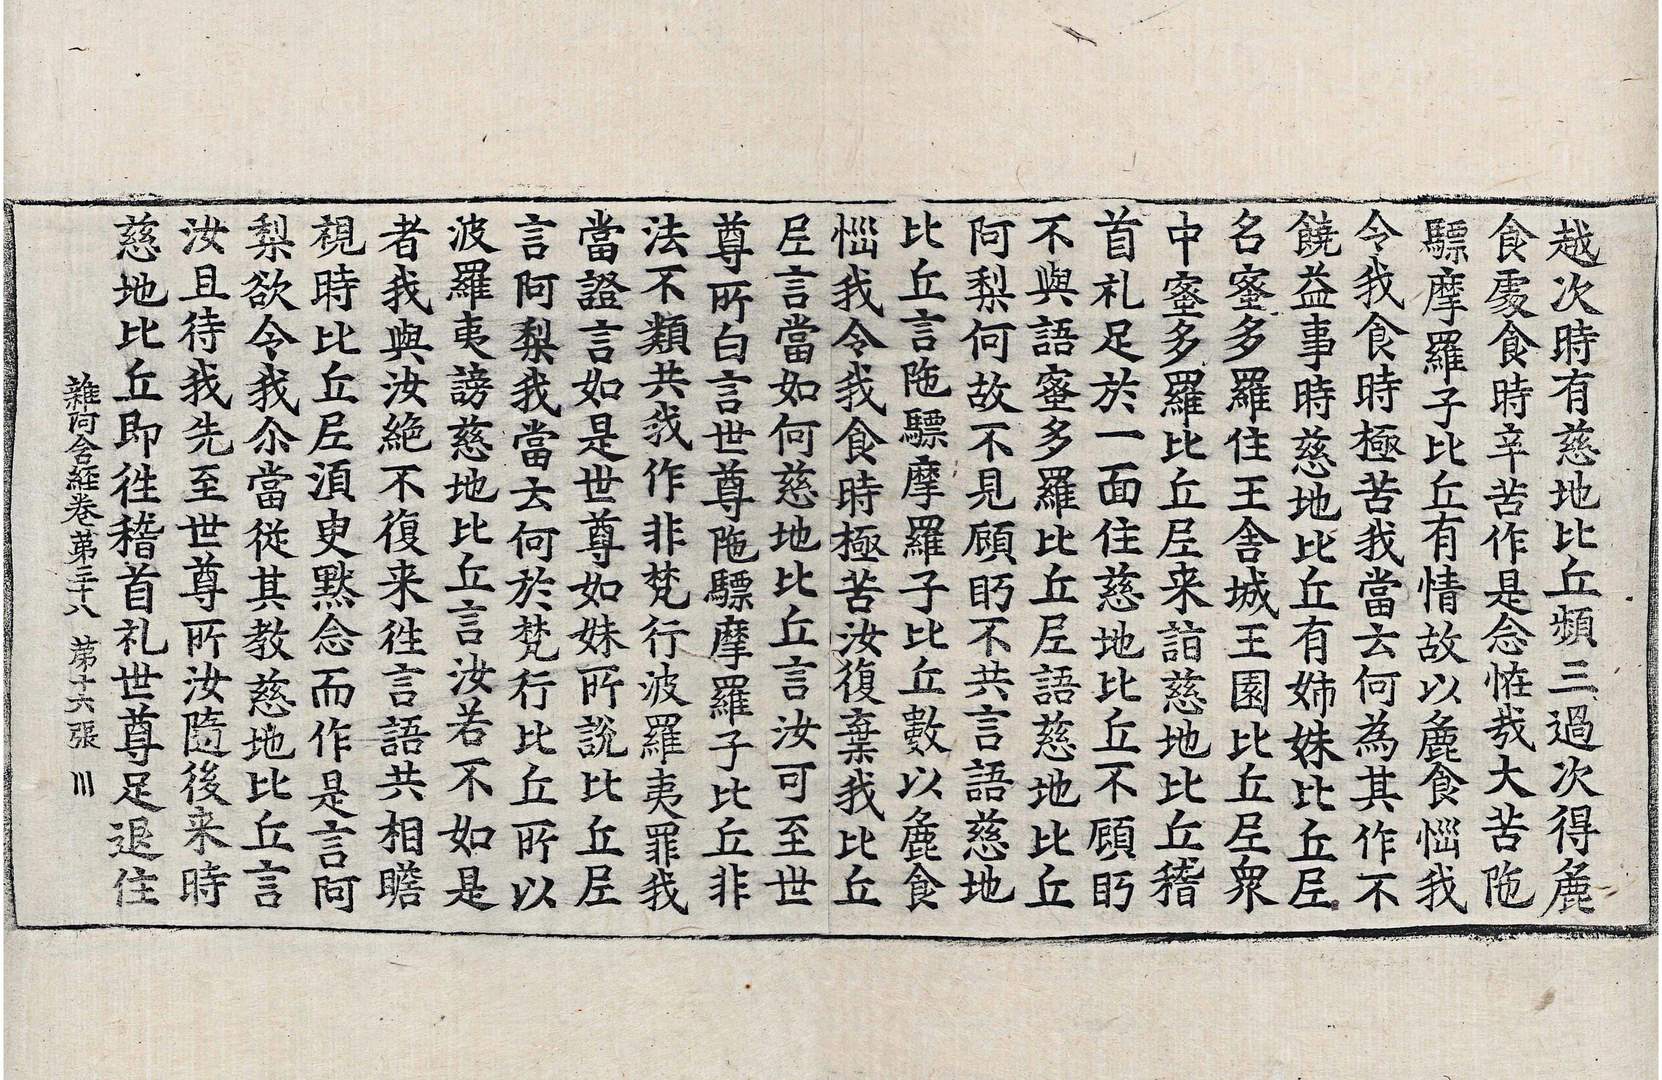 越次時有慈地比丘頻三過次得麁
食處食時辛苦作是念恠㢤大苦陁
驃摩羅子比丘有情故以麁食惱我
令我食時極苦我當云何為其作不
饒益事時慈地比丘有姉妹比丘尼
名蜜多羅住王舍城王園比丘尼衆
中蜜多羅比丘尼来詣慈地比丘稽
首礼足於一面住慈地比丘不顧眄
不與語蜜多羅比丘尼語慈地比丘
阿梨何故不見顧眄不共言語慈地
比丘言陁驃摩羅子比丘數以麁食
惱我令我食時極苦汝復棄我比丘
尼言當如何慈地比丘言汝可至世
尊所白言世尊陁驃摩羅子比丘非
法不類共我作非梵行波羅夷罪我
當證言如是世尊如妹所說比丘尼
言阿梨我當云何於梵行比丘所以
波羅夷謗慈地比丘言汝若不如是
者我與汝絶不復来徃言語共相瞻
視時比丘尼湏臾黙念而作是言阿
梨欲令我尒當從其教慈地比丘言
汝且待我先至世尊所汝隨後来時
慈地比丘即徃稽首礼世尊足退住
雜阿含経卷苐三十八 苐十六張